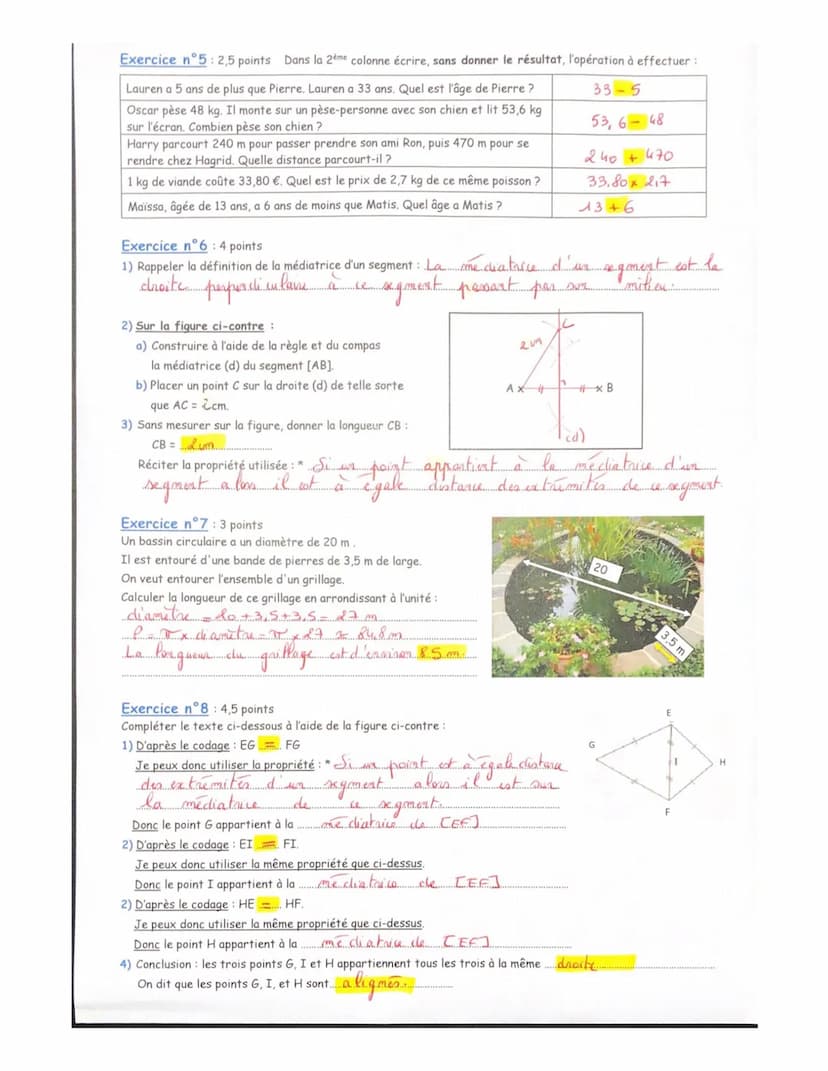 Exercice n°5 : 2,5 points Dans la 2ème colonne écrire, sans donner le résultat, l'opération à effectuer :
Lauren a 5 ans de plus que Pierre. Lauren a 33 ans. Quel est l'âge de Pierre ? 33 - 5
Oscar pèse 48 kg. Il monte sur un pèse-personne avec son chien et lit 53,6 kg
sur l'écran. Combien pèse son chien ? 53,6 - 48
Harry parcourt 240 m pour passer prendre son ami Ron, puis 470 m pour se
rendre chez Hagrid. Quelle distance parcourt-il ? 240 + 470
1 kg de viande coûte 33,80 €. Quel est le prix de 2,7 kg de ce même poisson ? 33,80 x 2,7
Maïssa, âgée de 13 ans, a 6 ans de moins que Matis. Quel âge a Matis ? 13 + 6
Exercice n°6 : 4 points
1) Rappeler la définition de la médiatrice d'un segment : La médiatrice d'un segment est la
droite perpendiculaire à ce segment passant par son milieu.
2) Sur la figure ci-contre :
a) Construire à l'aide de la règle et du compas
la médiatrice (d) du segment [AB].
b) Placer un point C sur la droite (d) de telle sorte
que AC = 2cm.
C
2cm
A x
x B
(d)
3) Sans mesurer sur la figure, donner la longueur CB :
CB = 2cm
Réciter la propriété utilisée : * Si un point appartient à la médiatrice d'un
segment alors il est à égale distance des extrémités de ce segment.
Exercice n°7 : 3 points
Un bassin circulaire a un diamètre de 20 m .
Il est entouré d'une bande de pierres de 3,5 m de large.
On veut entourer l'ensemble d'un grillage.
Calculer la longueur de ce grillage en arrondissant à l'unité :
diamètre = 20 + 3,5 + 3,5 = 27 m
P = π x diamètre = π x 27 ≈ 84,8 m
La longueur du grillage est d'environ 85 m.
20
3,5 m
Exercice n°8 : 4,5 points
Compléter le texte ci-dessous à l'aide de la figure ci-contre :
1) D'après le codage : EG = FG
Je peux donc utiliser la propriété : * Si un point est à égale distance
des extrémités d'un segment alors il est sur
la médiatrice de ce segment.
Donc le point G appartient à la médiatrice de [EF]
E
G
I
H
F
2) D'après le codage : EI = FI.
Je peux donc utiliser la même propriété que ci-dessus.
Donc le point I appartient à la médiatrice de [EF]
2) D'après le codage : HE = HF.
Je peux donc utiliser la même propriété que ci-dessus.
Donc le point H appartient à la médiatrice de [EF]
4) Conclusion : les trois points G, I et H appartiennent tous les trois à la même droite
On dit que les points G, I, et H sont alignés.